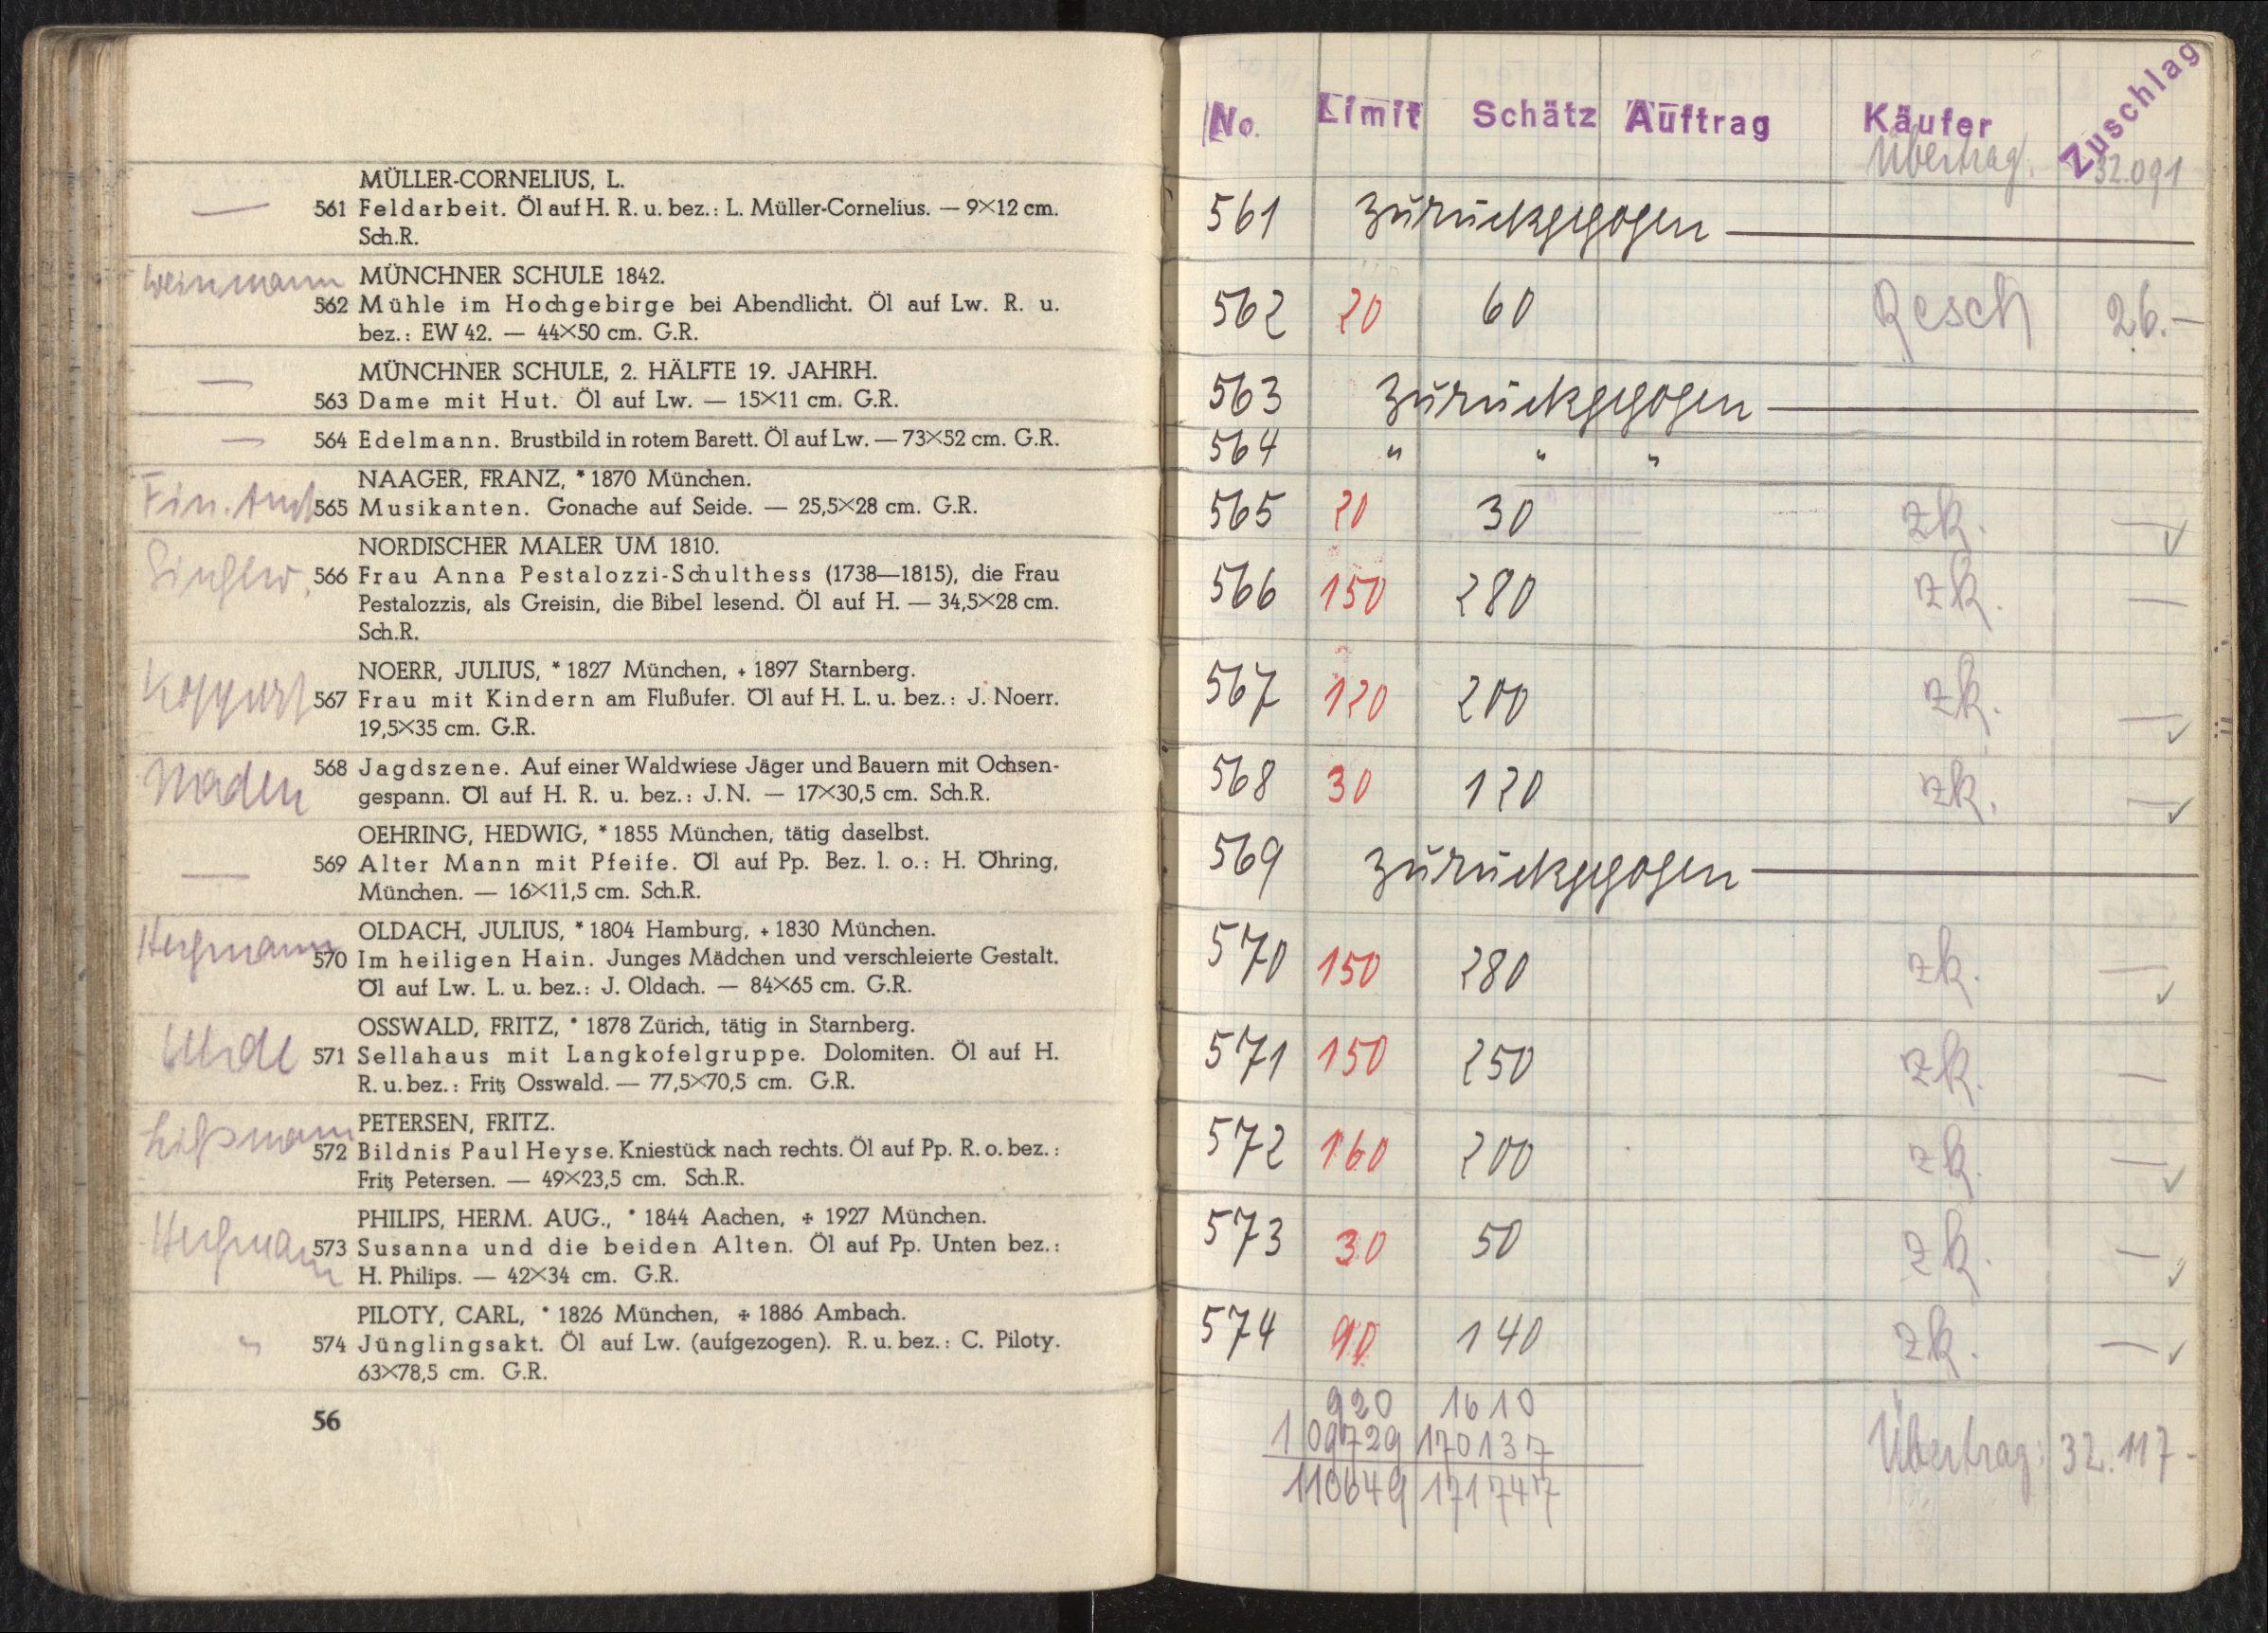 MÜLLER-CORNELIUS, L.
— 561 Feldarbeit. Öl auf H. R. u. bez.: L. Müller-Cornelius. — 9×12 cm.
Sch.R.
Weinmann MÜNCHNER SCHULE 1842.
562 Mühle im Hochgebirge bei Abendlicht. Öl auf Lw. R. u.
bez.: EW 42. — 44×50 cm. G.R.
MÜNCHNER SCHULE, 2. HÄLFTE 19. JAHRH.
— 563 Dame mit Hut. Öl auf Lw. — 15×11 cm. G.R.
— 564 Edelmann. Brustbild in rotem Barett. Öl auf Lw. — 73×52 cm. G.R.
NAAGER, FRANZ, * 1870 München.
Fin. Amt 565 Musikanten. Gonache auf Seide. — 25,5×28 cm. G.R.
NORDISCHER MALER UM 1810.
566 Frau Anna Pestalozzi-Schulthess (1738—1815), die Frau
Pestalozzis, als Greisin, die Bibel lesend. Öl auf H. — 34,5×28 cm.
Sch.R.
NOERR, JULIUS, * 1827 München, + 1897 Starnberg.
567 Frau mit Kindern am Flußufer. Öl auf H. L. u. bez.: J. Noerr.
19,5×35 cm. G.R.
568 Jagdszene. Auf einer Waldwiese Jäger und Bauern mit Ochsen-
gespann. Öl auf H. R. u. bez.: J. N. — 17×30,5 cm. Sch.R.
OEHRING, HEDWIG, * 1855 München, tätig daselbst.
— 569 Alter Mann mit Pfeife. Öl auf Pp. Bez. l. o.: H. Öhring,
München. — 16×11,5 cm. Sch.R.
OLDACH, JULIUS, * 1804 Hamburg, + 1830 München.
570 Im heiligen Hain. Junges Mädchen und verschleierte Gestalt.
Öl auf Lw. L. u. bez.: J. Oldach. — 84×65 cm. G.R.
OSSWALD, FRITZ, * 1878 Zürich, tätig in Starnberg.
571 Sellahaus mit Langkofelgruppe. Dolomiten. Öl auf H.
R. u. bez.: Fritz Osswald. — 77,5×70,5 cm. G.R.
PETERSEN, FRITZ.
572 Bildnis Paul Heyse. Kniestück nach rechts. Öl auf Pp. R. o. bez.:
Fritz Petersen. — 49×23,5 cm. Sch.R.
PHILIPS, HERM. AUG., * 1844 Aachen, + 1927 München.
573 Susanna und die beiden Alten. Öl auf Pp. Unten bez.:
H. Philips. — 42×34 cm. G.R.
PILOTY, CARL, * 1826 München, + 1886 Ambach.
" 574 Jünglingsakt. Öl auf Lw. (aufgezogen). R. u. bez.: C. Piloty.
63×78,5 cm. G.R.
56
No. Limit Schätz Auftrag Käufer Zuschlag
Übertrag. 32.091
561 zurückgezogen —
562 20 60 Resch 26.—
563 zurückgezogen —
564 " " "
565 20 30 zk. — ✓
566 150 280 zk. —
567 120 200 zk. — ✓
568 30 120 zk. — ✓
569 zurückgezogen —
570 150 280 zk. — ✓
571 150 250 zk. —
572 160 200 zk. — ✓
573 30 50 zk. — ✓
574 90 140 zk. — ✓
920 1610
109729 170137
110649 171747
Übertrag: 32.117.-